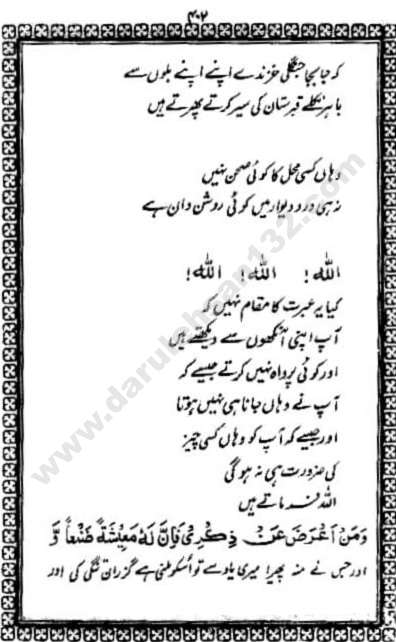 ۴۰۲
کہ جابجا جنگلی خزندے اپنے اپنے بلوں سے
باہر نکلے قبرستان کی سیر کرتے پھرتے ہیں
وہاں کسی محل کا کوئی صحن نہیں
نہ ہی در و دیوار میں کوئی روشن دان ہے
اللہ! اللہ! اللہ!
کیا یہ عبرت کا مقام نہیں کہ
آپ اپنی آنکھوں سے دیکھتے ہیں
اور کوئی پرواہ نہیں کرتے جیسے کہ
آپ نے وہاں جانا ہی نہیں ہوتا
اور جیسے کہ آپ کو وہاں کسی چیز
کی ضرورت ہی نہ ہوگی
اللہ فرماتے ہیں
وَمَنْ اَعْرَضَ عَنْ ذِکْرِیْ فَاِنَّ لَہٗ مَعِیْشَةً ضَنْکًا وَّ
اور جس نے منہ پھیرا میری یاد سے تو اسکو ملنی ہے گزران تنگی کی اور
www.darulehsan132.com